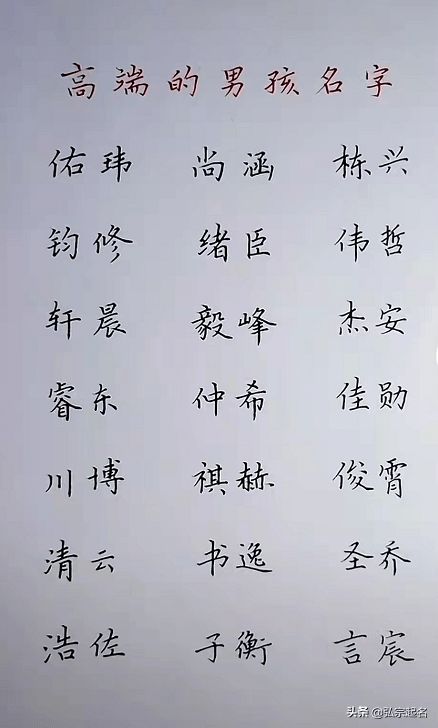 高端的男孩名字
佑玮 尚涵 栋兴
钧修 绪臣 伟哲
轩晨 毅峰 杰安
睿东 仲希 佳勋
川博 祺赫 俊霄
清云 书逸 圣乔
浩佐 子衡 言宸
头条 @弘宗起名